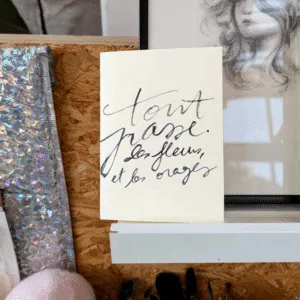 tout
passe.
Les fleurs,
et les orages